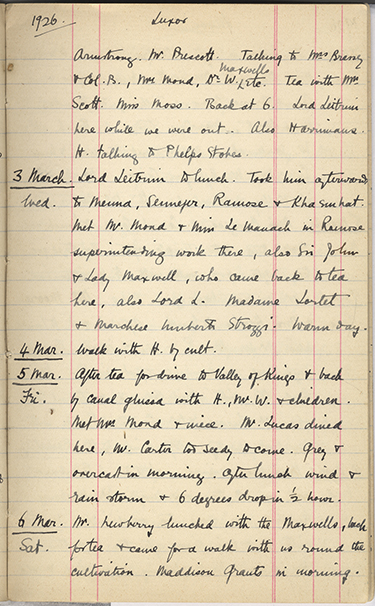 1926. Luxor
Armstrong, Mr. Prescott. Talking to Mrs Brassey
& Col. B., Mrs Mond, Dr. W. Maxwells Etc. Tea with Mr
Scott. Miss Moss. Back at 6. Lord Leitrim
here while we were out. Also Harrimans.
H. talking to Phelps Stokes.
3 March. Lord Leitrim to lunch. Took him afterwards
Wed. to Menna, Sennefer, Ramose & Khaemhat.
Met Mr. Mond & Miss Le Manach in Ramose
superintending work there, also Sir John
& Lady Maxwell, who came back to tea
here, also Lord L. Madame Lortet
& Marchese Umberto Strozzi. Warm day.
4 Mar. Walk with H. by cult.
5 Mar. After tea for drive to Valley of Kings & back
Fri. by canal with H., Mr. W. & children.
Met Mrs Mond & niece. Mr. Lucas dined
here, Mr. Carter too seedy to come. Grey &
overcast in morning. After lunch wind &
rain storm & 6 degrees drop in ½ hour.
6 Mar. Mr. Newberry lunched with the Maxwells, back
Sat. for tea & came for a walk with us round the
cultivation. Maddison Grants in morning.